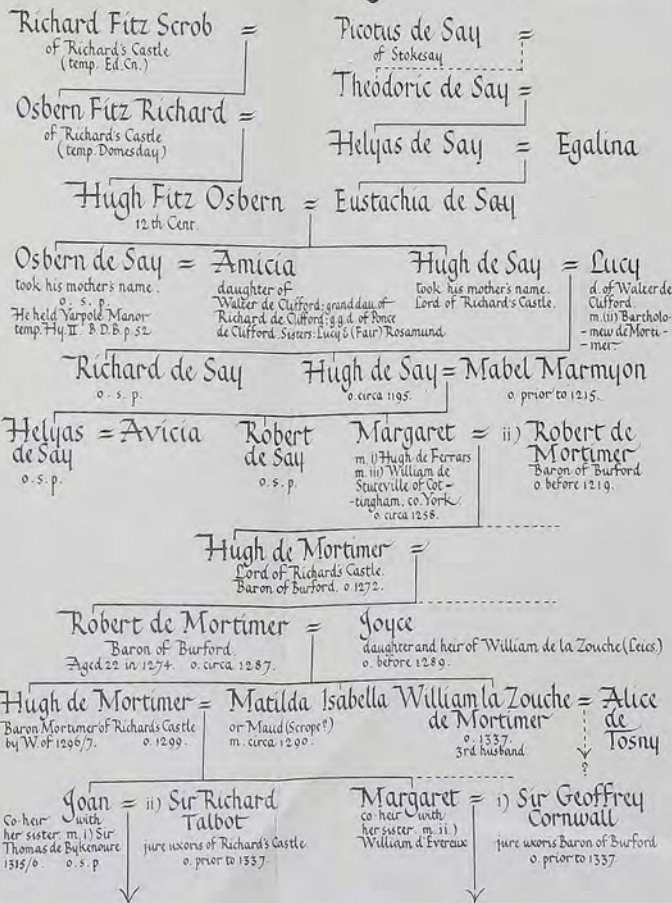 Richard Fitz Scrob =
of Richard's Castle
(temp. Ed.Cn.)
Picotus de Say =
of Stokesay
Osbern Fitz Richard =
of Richard's Castle
(temp. Domesday)
Theodoric de Say =
Helyas de Say = Egalina
Hugh Fitz Osbern = Eustachia de Say
12th Cent.
Osbern de Say =
took his mother's name.
o. s. p.
He held Yarpole Manor
temp. Hy. II. B.D.B. p. 52
Amicia
daughter of
Walter de Clifford: grand dau. of
Richard de Clifford: g.g.d. of Ponce
de Clifford. Sisters: Lucy & (Fair) Rosamund
Hugh de Say =
took his mother's name.
Lord of Richard's Castle.
Lucy
d. of Walter de
Clifford.
m.(ii) Bartholo-
-mew de Morti-
-mer
Richard de Say
o. s. p.
Hugh de Say = Mabel Marmyon
o. circa 1195.
o. prior to 1215.
Helyas = Avicia
de Say
o. s. p.
Robert
de Say
o. s. p.
Margaret =
m. i) Hugh de Ferrars
m. iii) William de
Stuteville of Cot-
-tingham, co. York.
o. circa 1258.
ii) Robert de
Mortimer
Baron of Burford
o. before 1219.
Hugh de Mortimer =
Lord of Richard's Castle.
Baron of Burford. o. 1272.
Robert de Mortimer =
Baron of Burford.
Aged 22 in 1274. o. circa 1287.
Joyce
daughter and heir of William de la Zouche (Leics.)
o. before 1289.
Hugh de Mortimer =
Baron Mortimer of Richard's Castle
by W. of 1296/7. o. 1299.
Matilda
or Maud (Scrope?)
m. circa 1290.
Isabella
William la Zouche =
de Mortimer
o. 1337.
3rd husband
Alice
de
Tosny
?
Joan =
Co-heir with
her sister. m. i) Sir
Thomas de Bykenoure
1315/6. o. s. p
ii) Sir Richard
Talbot
jure uxoris of Richard's Castle.
o. prior to 1337.
Margaret =
co-heir with
her sister. m. ii.)
William d'Evereux
i) Sir Geoffrey
Cornwall
jure uxoris Baron of Burford
o. prior to 1337.